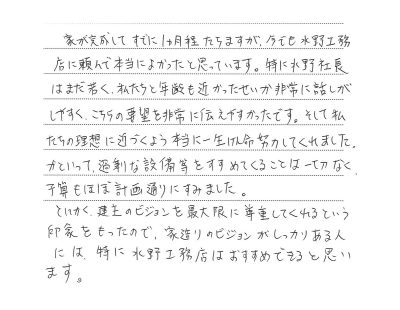 家が完成して すでに 1ヵ月程 たちますが、今でも 水野工務
店に頼んで本当によかったと思っています。特に水野社長
はまだ若く、私たちと年齢も近かったせいか非常に話しが
しやすく、こちらの要望を非常に伝えやすかったです。そして私
たちの理想に近づくよう本当に一生けん命努力してくれました。
かといって、過剰な設備等をすすめてくることは一切なく、
予算もほぼ計画通りにすみました。
とにかく、建主のビジョンを最大限に尊重してくれるという
印象をもったので、家造りのビジョンがしっかりある人
には、特に水野工務店はおすすめできると思い
ます。